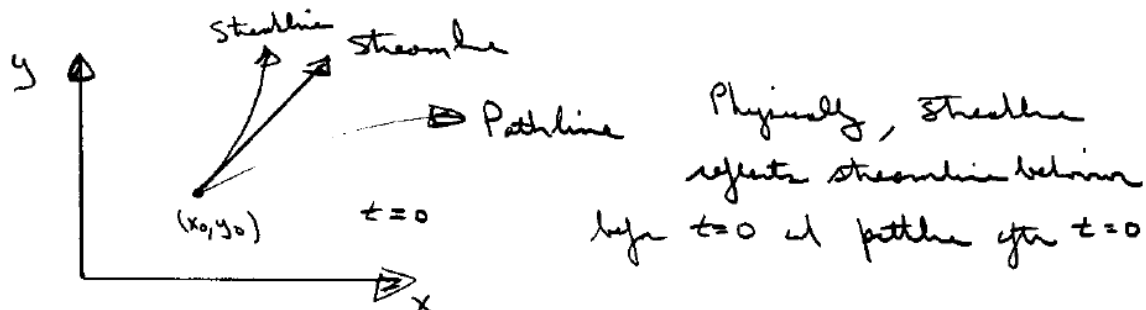 Streakline
Streamline
y
Pathline
Physically, streakline
reflects streamline behavior
(x₀,y₀)
t=0
before t=0 and pathline after t=0
x